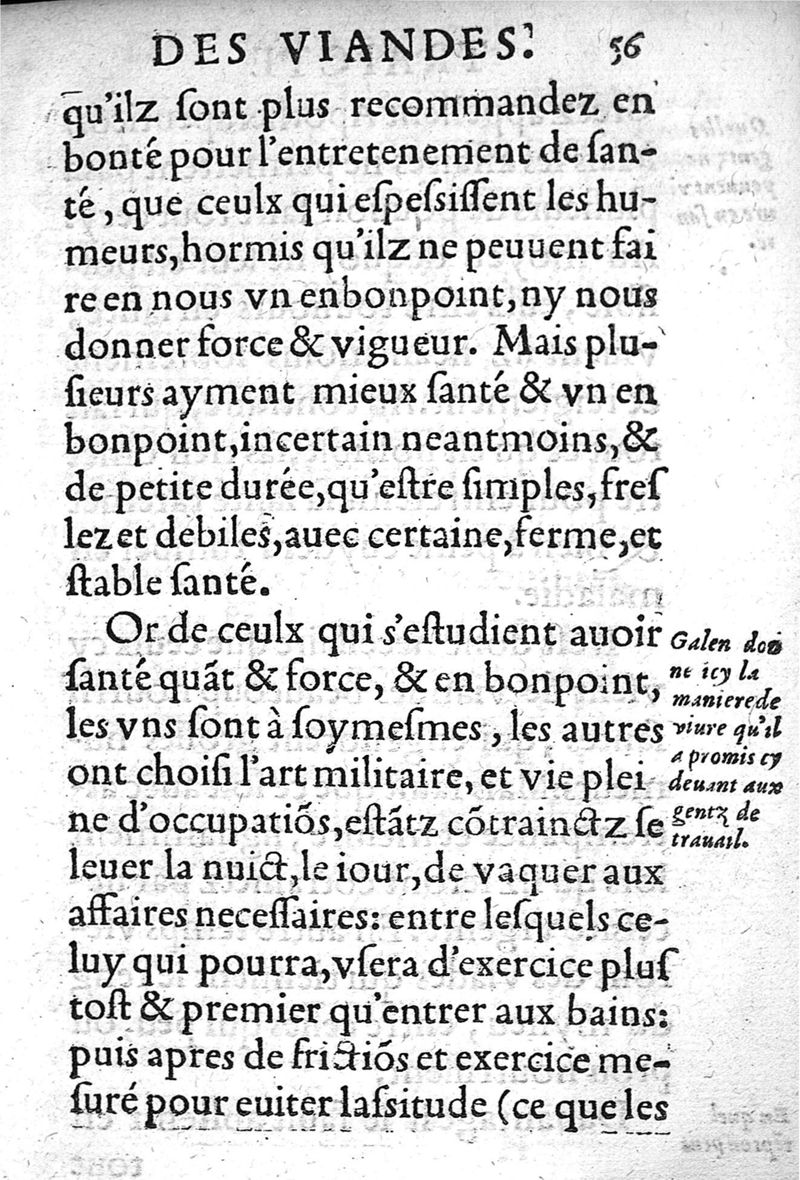 DES VIANDES. 56
qu'ilz ſont plus recommandez en
bonté pour l'entretenement de ſan-
té, que ceulx qui eſpeſsiſſent les hu-
meurs, hormis qu'ilz ne peuuent fai
re en nous vn enbonpoint, ny nous
donner force & vigueur. Mais plu-
ſieurs ayment mieux ſanté & vn en
bonpoint, incertain neantmoins, &
de petite durée, qu'eſtre ſimples, freſ
lez et debiles, auec certaine, ferme, et
ſtable ſanté.
Or de ceulx qui s'eſtudient auoir
ſanté quãt & force, & en bonpoint,
les vns ſont à ſoymeſmes, les autres
ont choiſi l'art militaire, et vie plei
ne d'occupatiõs, eſtãtz cõtrainctz ſe
leuer la nuict, le iour, de vaquer aux
affaires neceſſaires: entre leſquels ce-
luy qui pourra, vſera d'exercice pluſ
toſt & premier qu'entrer aux bains:
puis apres de frictiõs et exercice me-
ſuré pour euiter laſsitude (ce que les
Galen don
ne icy la
maniere de
viure qu'il
a promis cy
deuant aux
gentz de
trauail.